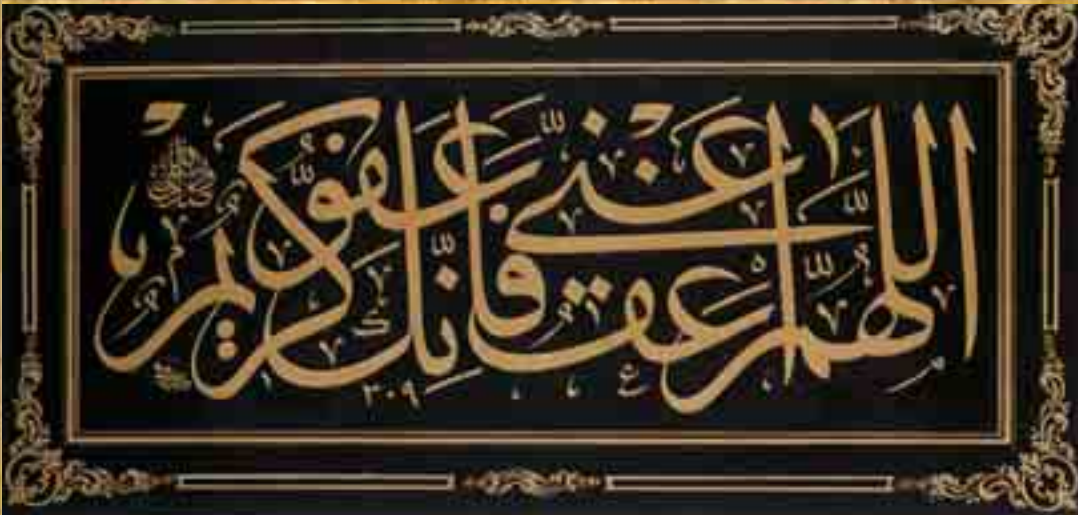 اللهم اعف عنّي فانّك عفوٌّ كريم
٣٠٩